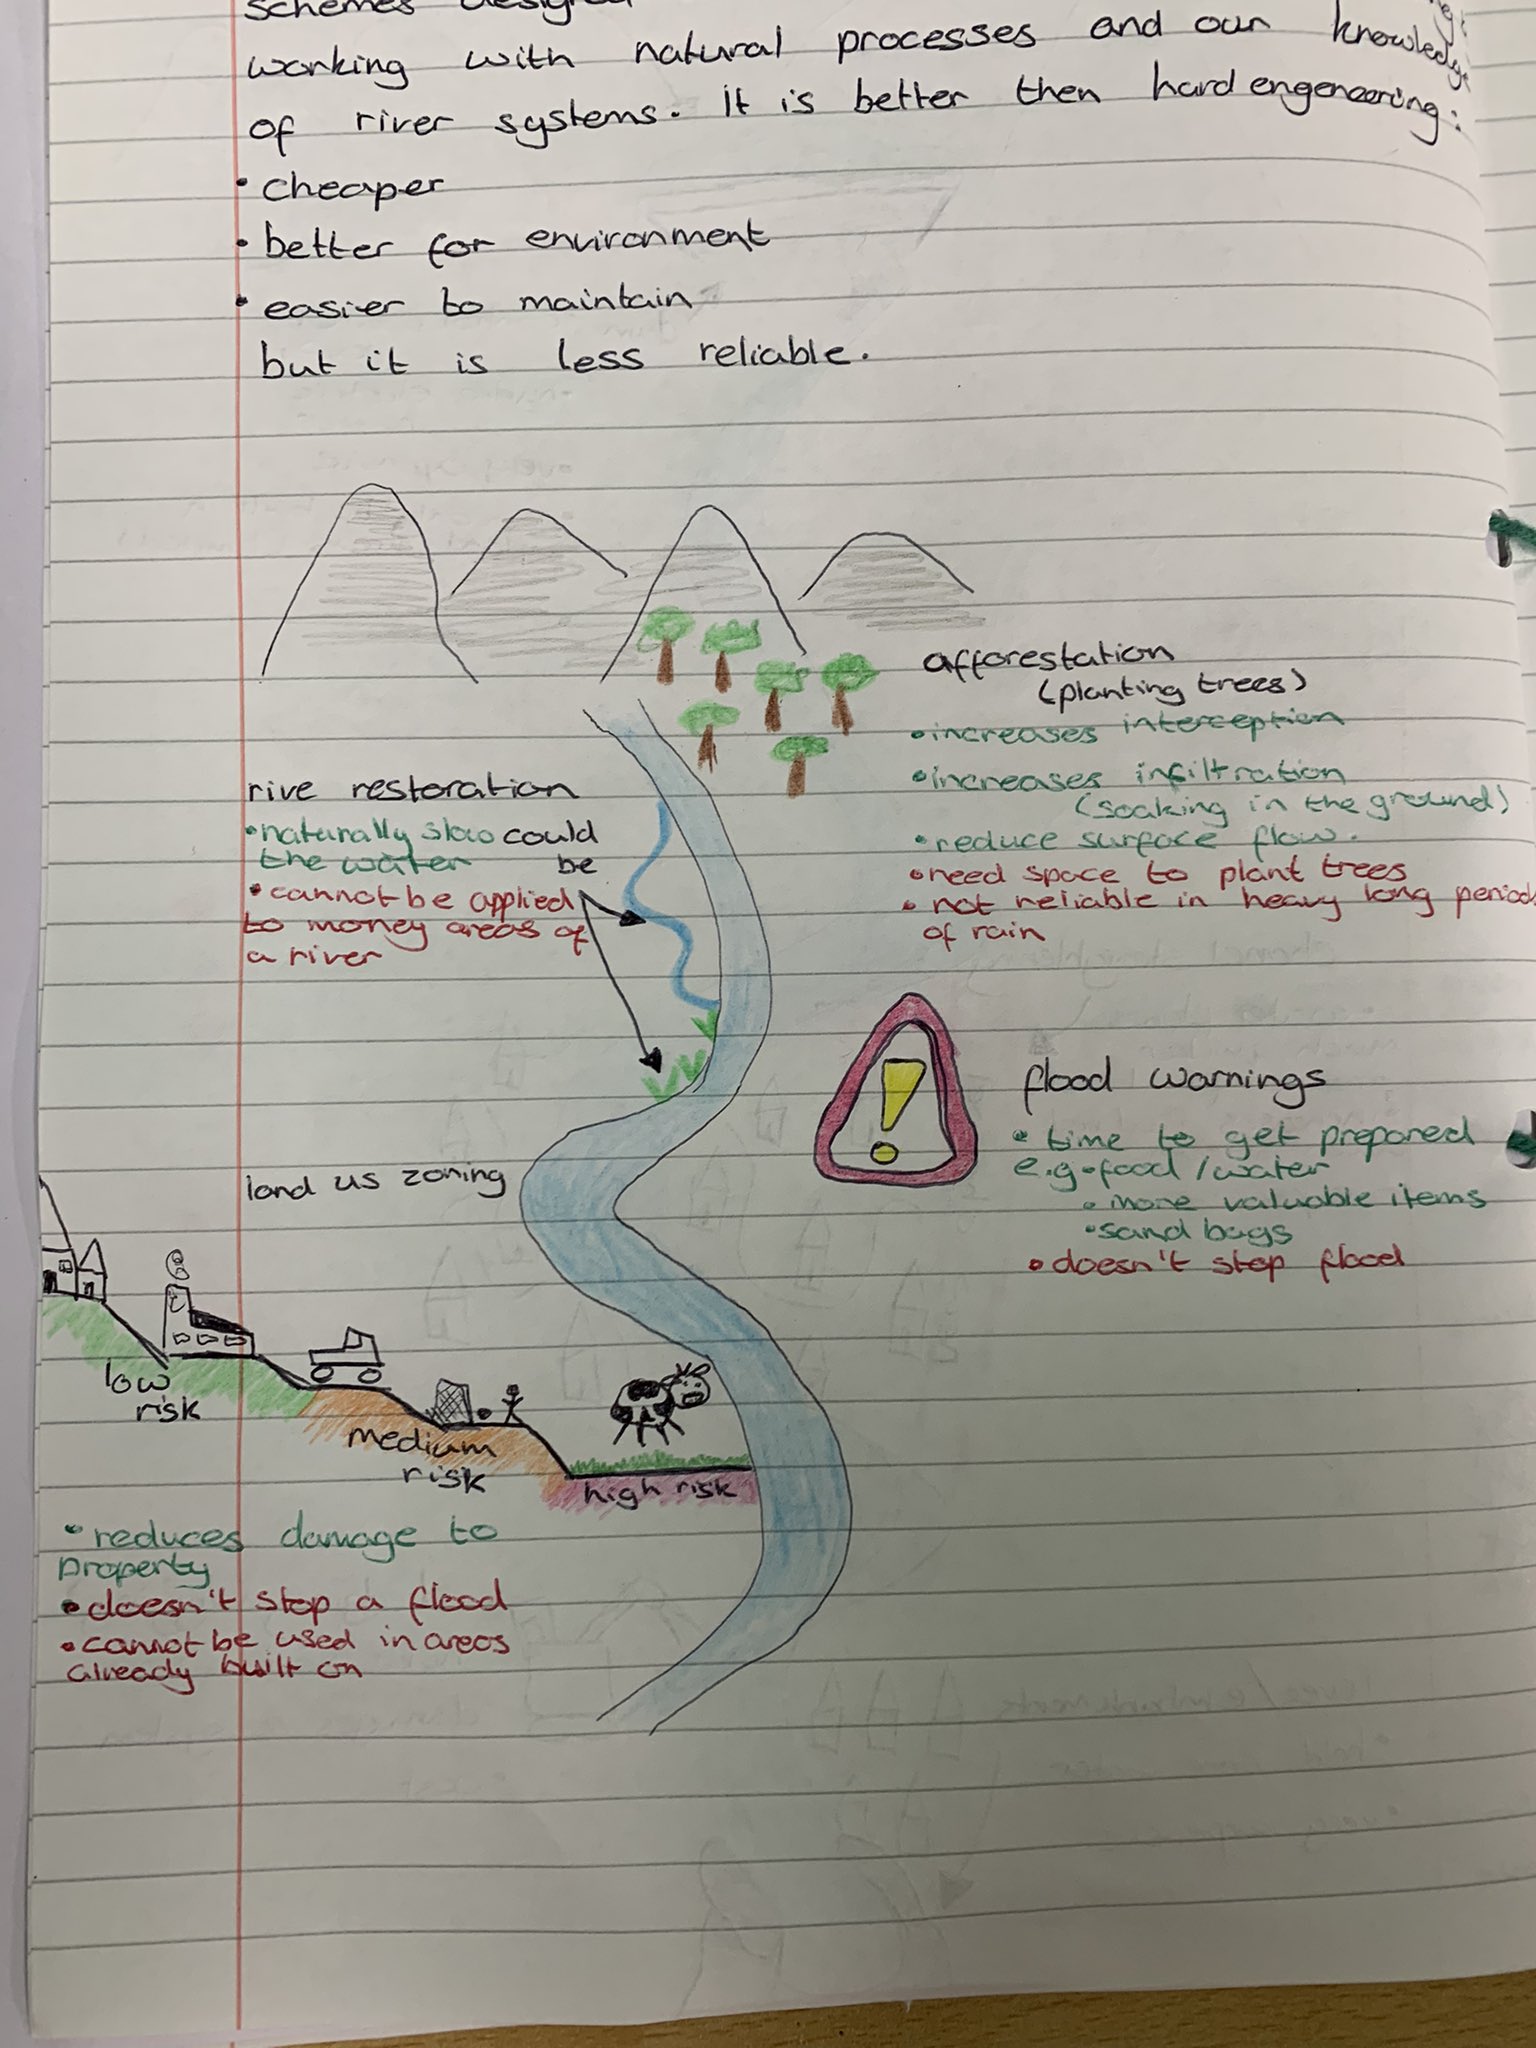 schemes designed
working with natural processes and our knowledge
of river systems. It is better then hard engeneering:
• cheaper
• better for environment
• easier to maintain
but it is less reliable.
afforestation
(planting trees)
• increases interception
• increases infiltration
(soaking in the ground)
• reduce surface flow.
• need space to plant trees
• not reliable in heavy long periods
of rain
rive restoration
• naturally slow could
the water be
• cannot be applied
to money areas of
a river
flood warnings
• time to get prepared
e.g • food / water
• more valuable items
• sand bags
• doesn't stop flood
land us zoning
low
risk
medium
risk
high risk
• reduces damage to
property
• doesn't stop a flood
• cannot be used in areas
already built on